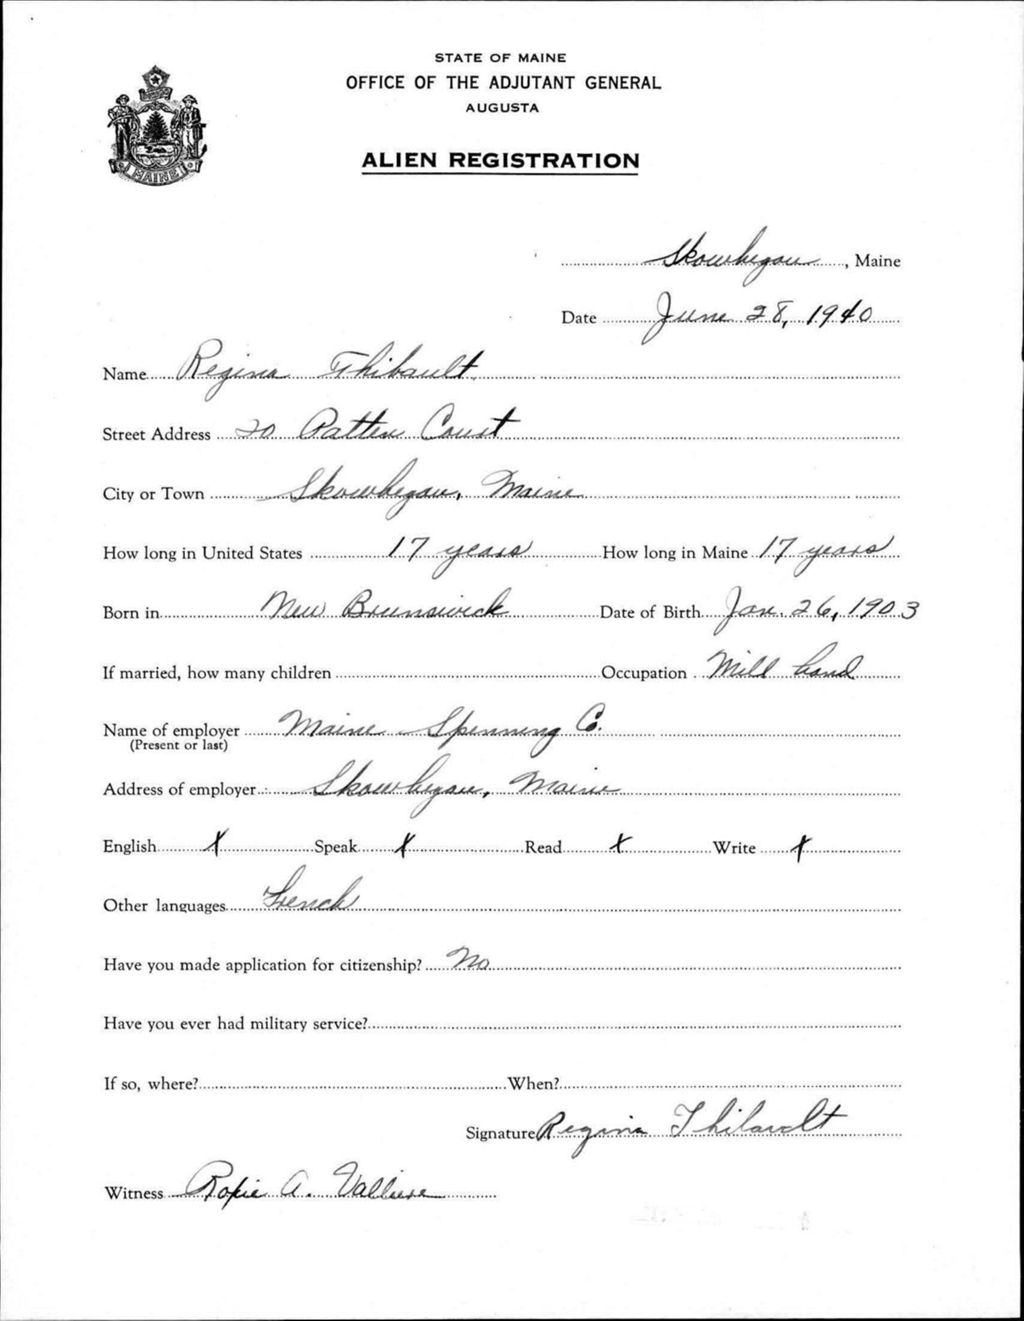 STATE OF MAINE
OFFICE OF THE ADJUTANT GENERAL
AUGUSTA
ALIEN REGISTRATION
MAINE
Skowhegan, Maine
Date June 28, 1940
Name Regina Thibault
Street Address 20 Patten Court
City or Town Skowhegan, Maine
How long in United States 17 years How long in Maine 17 years
Born in New Brunswick Date of Birth Jan. 26, 1903
If married, how many children Occupation Mill hand
Name of employer Maine Spinning Co.
(Present or last)
Address of employer Skowhegan, Maine
English x Speak x Read x Write x
Other languages French
Have you made application for citizenship? No
Have you ever had military service?
If so, where? When?
Signature Regina Thibault
Witness A. Valliere